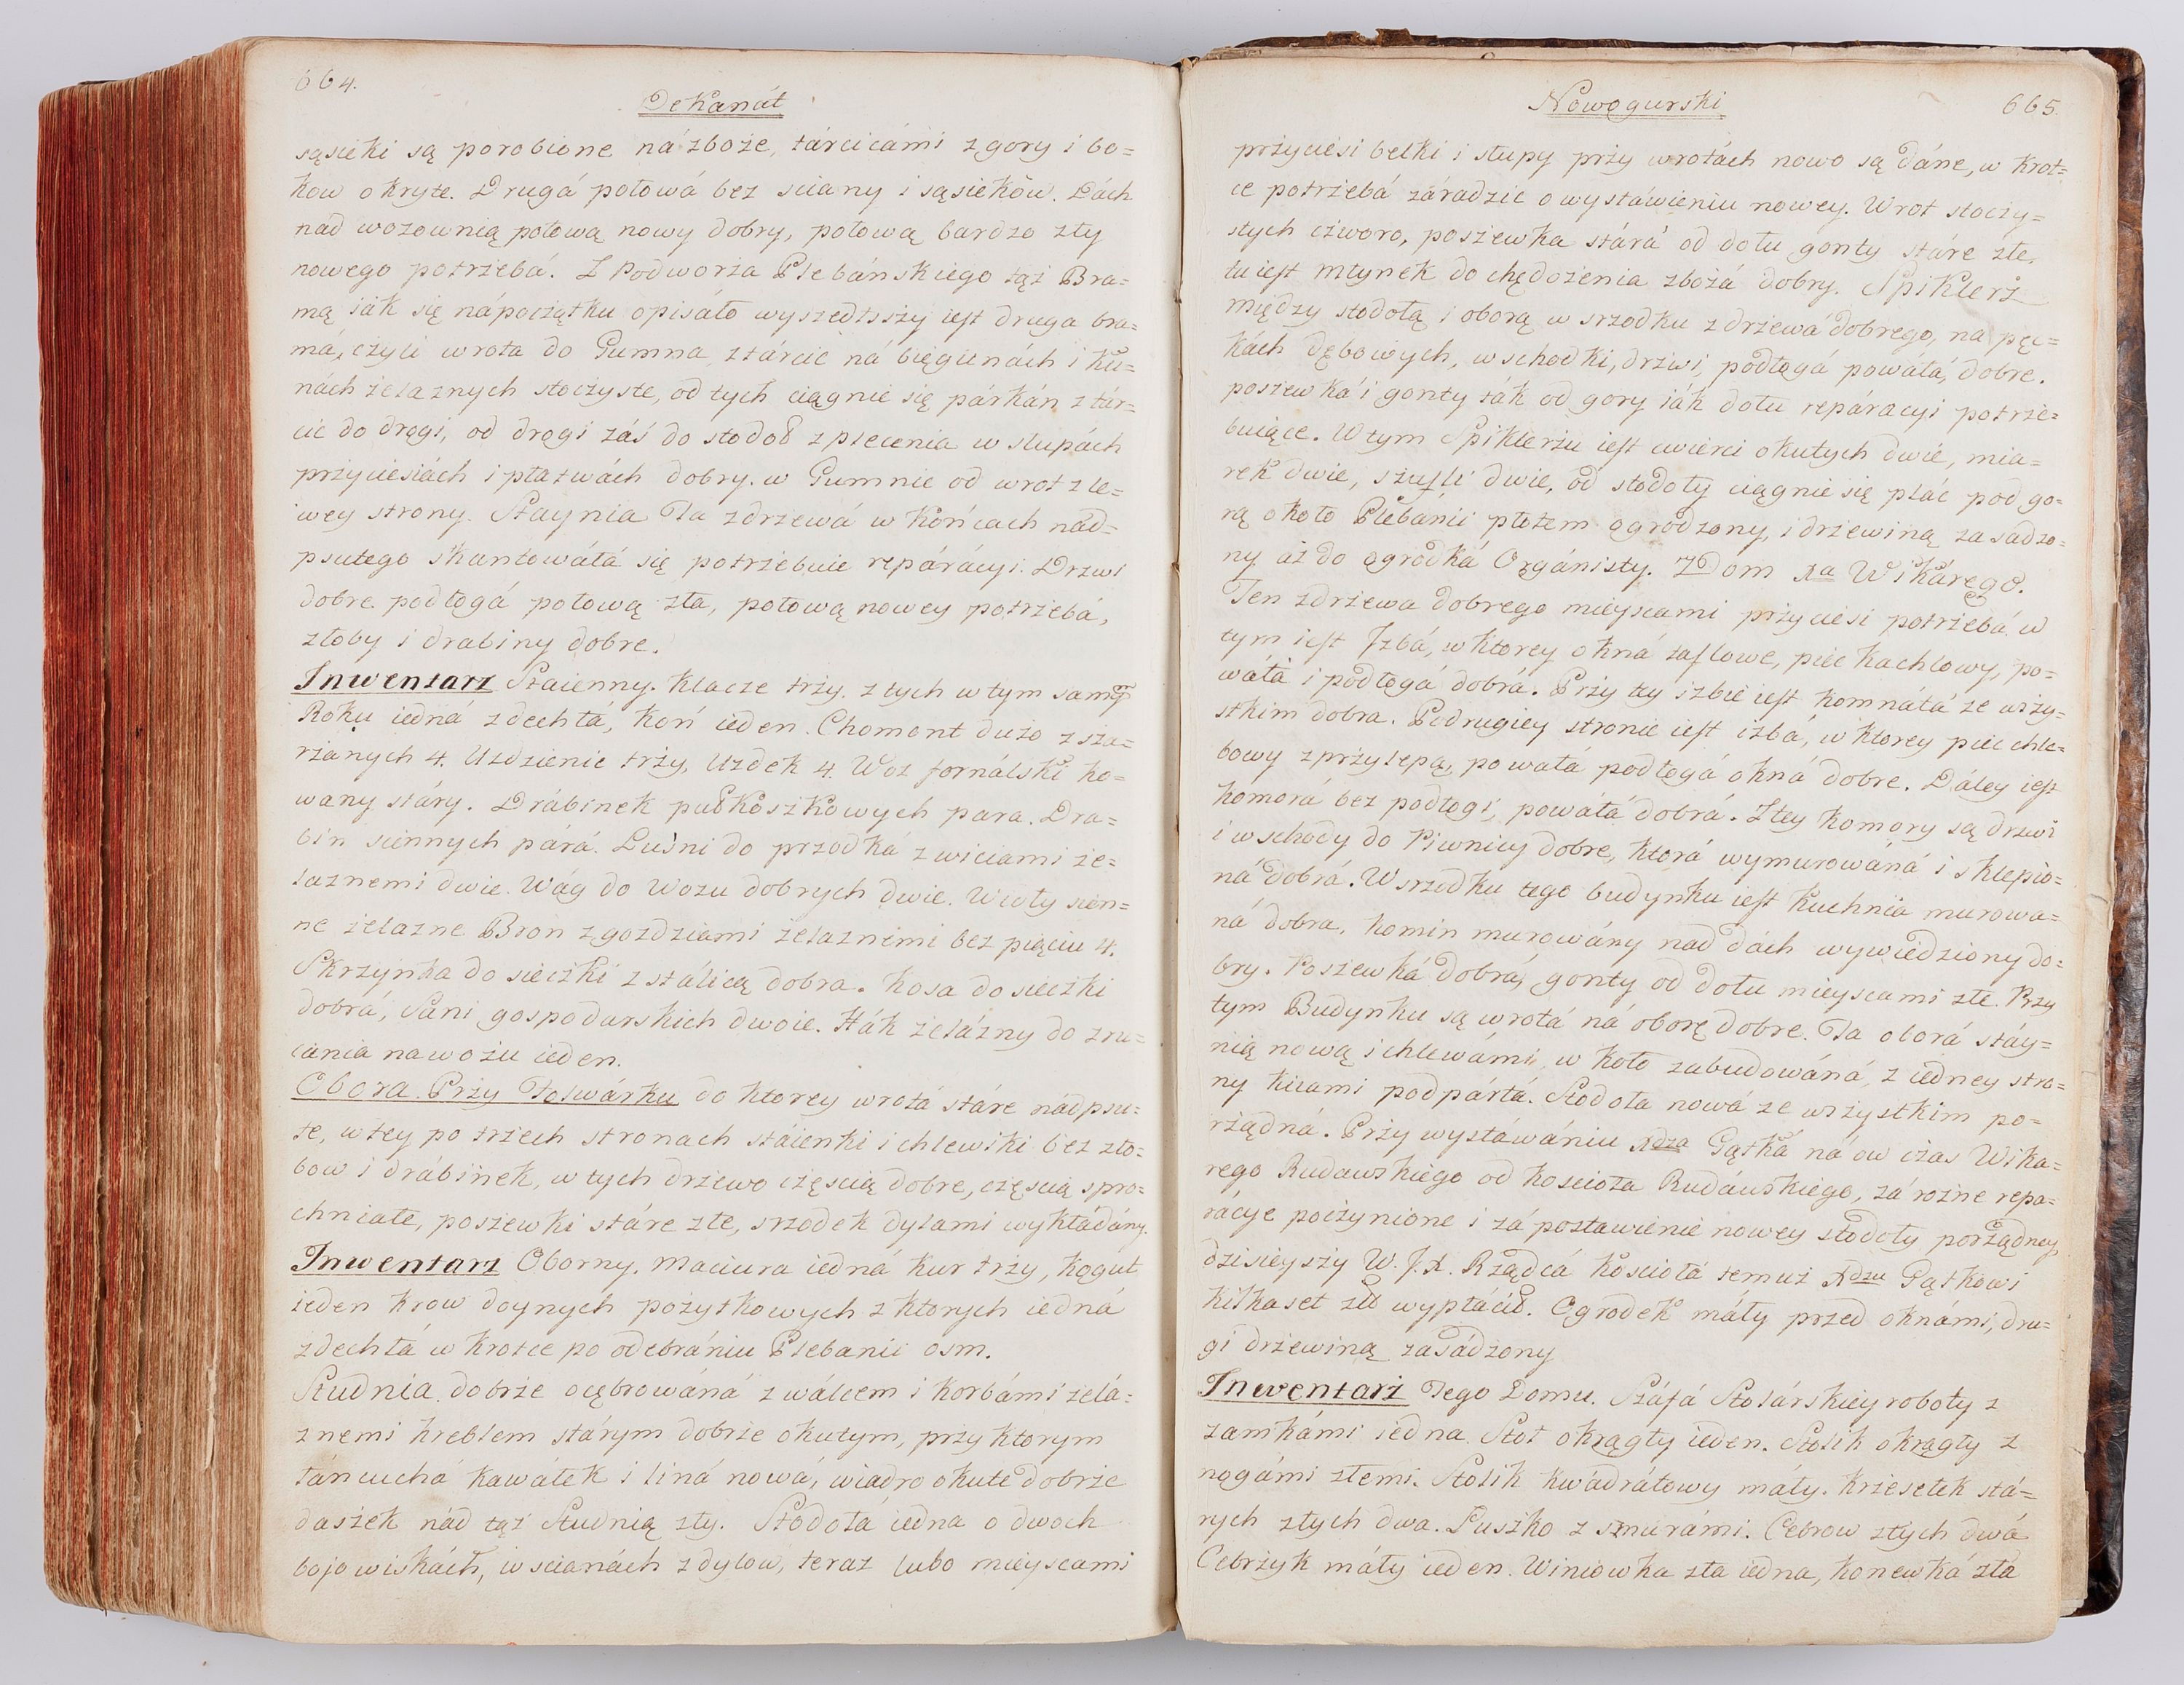 664.
Dekanát
sąsieki są porobione ná zboże, tárcicámi z gory i bo=
kow okryte. Drugá połowá bez sciany i sąsieków. Dách
nad wozownią połową nowy dobry, połową bardzo zły
nowego potrzebá. Z Podworza Plebánskiego tąż Bra=
mą iak się nápoczątku opisáło wyszedłszy iest druga bra=
má, czyli wrota do Gumna z tárcic ná biegunách i ku=
nách żelaznych stoczyste, od tych ciągnie się párkán z tár=
cic do drogi, od drogi záś do stodoł z plecenia w słupách
przyciesiách i płatwách dobry. w Gumnie od wrot z le=
wey strony. Staynia Ta z drzewá w końcach nád=
psutego skantowáłá się potrzebuie repárácyi. Drzwi
dobre podłogá połową zła, połową nowey potrzebá,
złoby i drabiny dobre.
Inwentarz Staienny. Klacze trzy, z tych w tym samÿ
Roku iedná zdechłá, koń ieden. Chomont dużo z sza=
rzanych 4. Uzdzienic trzy, Uzdek 4. Woz fornálski ko=
wany stáry. Drábinek pułkoszkowych para. Dra=
bin siennych párá. Luśni do przodká z wiciami że=
laznemi dwie. Wág do Wozu dobrych dwie. Widły sien=
ne żelazne Bron z gozdziami żelaznemi bez pięciu 4.
Skrzynka do sieczki z stálicą dobra. Kosa do sieczki
dobrá, Sáni gospodarskich dwoie. Hák żelázny do zru=
cania nawozu ieden.
Obora Przy Folwárku do ktorey wrotá stáre nádpsu=
te, w tey po trzech stronach stáienki i chlewiki bez zło=
bow i drábinek, w tych drzewo częscią dobre, częscią spro=
chniałe, poszewki stáre złe, srzodek dylami wykłádány.
Inwentarz Oborny. Maciura iedná kur trzy, kogut
ieden krow doynych pożytkowych z ktorych iedná
zdechłá w krotce po odebrániu Plebanii osm.
Studnia dobrze ocębrowáná z wálcem i korbámi żelá=
znemi kreblem stárym dobrze okutym, przy ktorym
łáncuchá kawałek i liná nowá, wiadro okute dobrze
daszek nád tąż Studnią zły. Stodołá iedna o dwoch
bojowiskách, w scianách z dylow, teraz lubo mieyscami
Nowogurski
665
przyciesi belki i słupy przy wrotách nowo są dáne, w krot=
ce potrzebá záradzic o wystáwieniu nowey. Wrot stoczy=
stych czworo, poszewka stárá od dołu gonty stáre złe,
tu iest młynek do chędożenia zbożá dobry. Spiklerz
między stodołą i oborą w srzodku z drzewá dobrego, na pęc=
kách dębowych, wschodki, drzwi, podłogá powáłá, dobre.
poszewká i gonty ták od gory iák dołu repáracyi potrze=
buiące. W tym Spiklerzu iest cwierci okutych dwie, mia=
rek dwie, szufli dwie, od stodoły ciągnie się płác pod go=
rą około Plebánii płotem ogrodzony, i drzewiną zasadzo=
ny aż do ogrodká Orgánisty. Dom Xa Wikárego.
Ten z drzewa dobrego mieyscami przyciesi potrzebá w
tym iest Izbá, w ktorey okná taflowe, piec kachlowy, po=
wáłá i podłogá dobrá. Przy tey izbie iest komnátá ze wszy=
stkim dobra. Po drugiey stronie iest izbá, w ktorey piec chle=
bowy z przylepą, powałá podłogá okná dobre. Dáley iest
komorá bez podłogi, powáłá dobrá. Z tey komory są drzwi
i wschody do Piwnicy dobre, ktorá wymurowáná i sklepio=
ná dobrá. W srzodku tego budynku iest kuchnia murowa=
ná dobra, komin murowány nad dách wywiedziony do=
bry. Poszewká dobrá, gonty od dołu mieyscami złe. Przy
tym Budynku są wrotá ná oborę dobre. Ta oborá stáy=
nią nową i chlewámi w koło zabudowáná, z iedney stro=
ny kizami podpártá. Stodoła nowá ze wszystkim po=
rządná. Przy wystáwániu Xdza Gątká ná ow czas Wika=
rego Rudawskiego od kościoła Rudáwskiego, zá rożne repa=
rácye poczynione i zá postawienie nowey stodoły porządney
dzisieyszy W.J.X. Rządcá kościołá temuż Xdzu Gątkowi
kilkaset zł wypłácił. Ogrodek máły przed oknámi, dru=
gi drzewiną zasádzony
Inwentarz Tego Domu. Száfá Stolárskiey roboty z
zamkámi iedna. Stoł okrągły ieden. Stolik okrągły z
nogámi złemi. Stolik kwádrátowy máły. Krzesełek stá=
rych złych dwa. Łuszko z sznurámi. Cebrow złych dwá
Cebrzyk máły ieden. Winiowka zła iedna, konewká złá